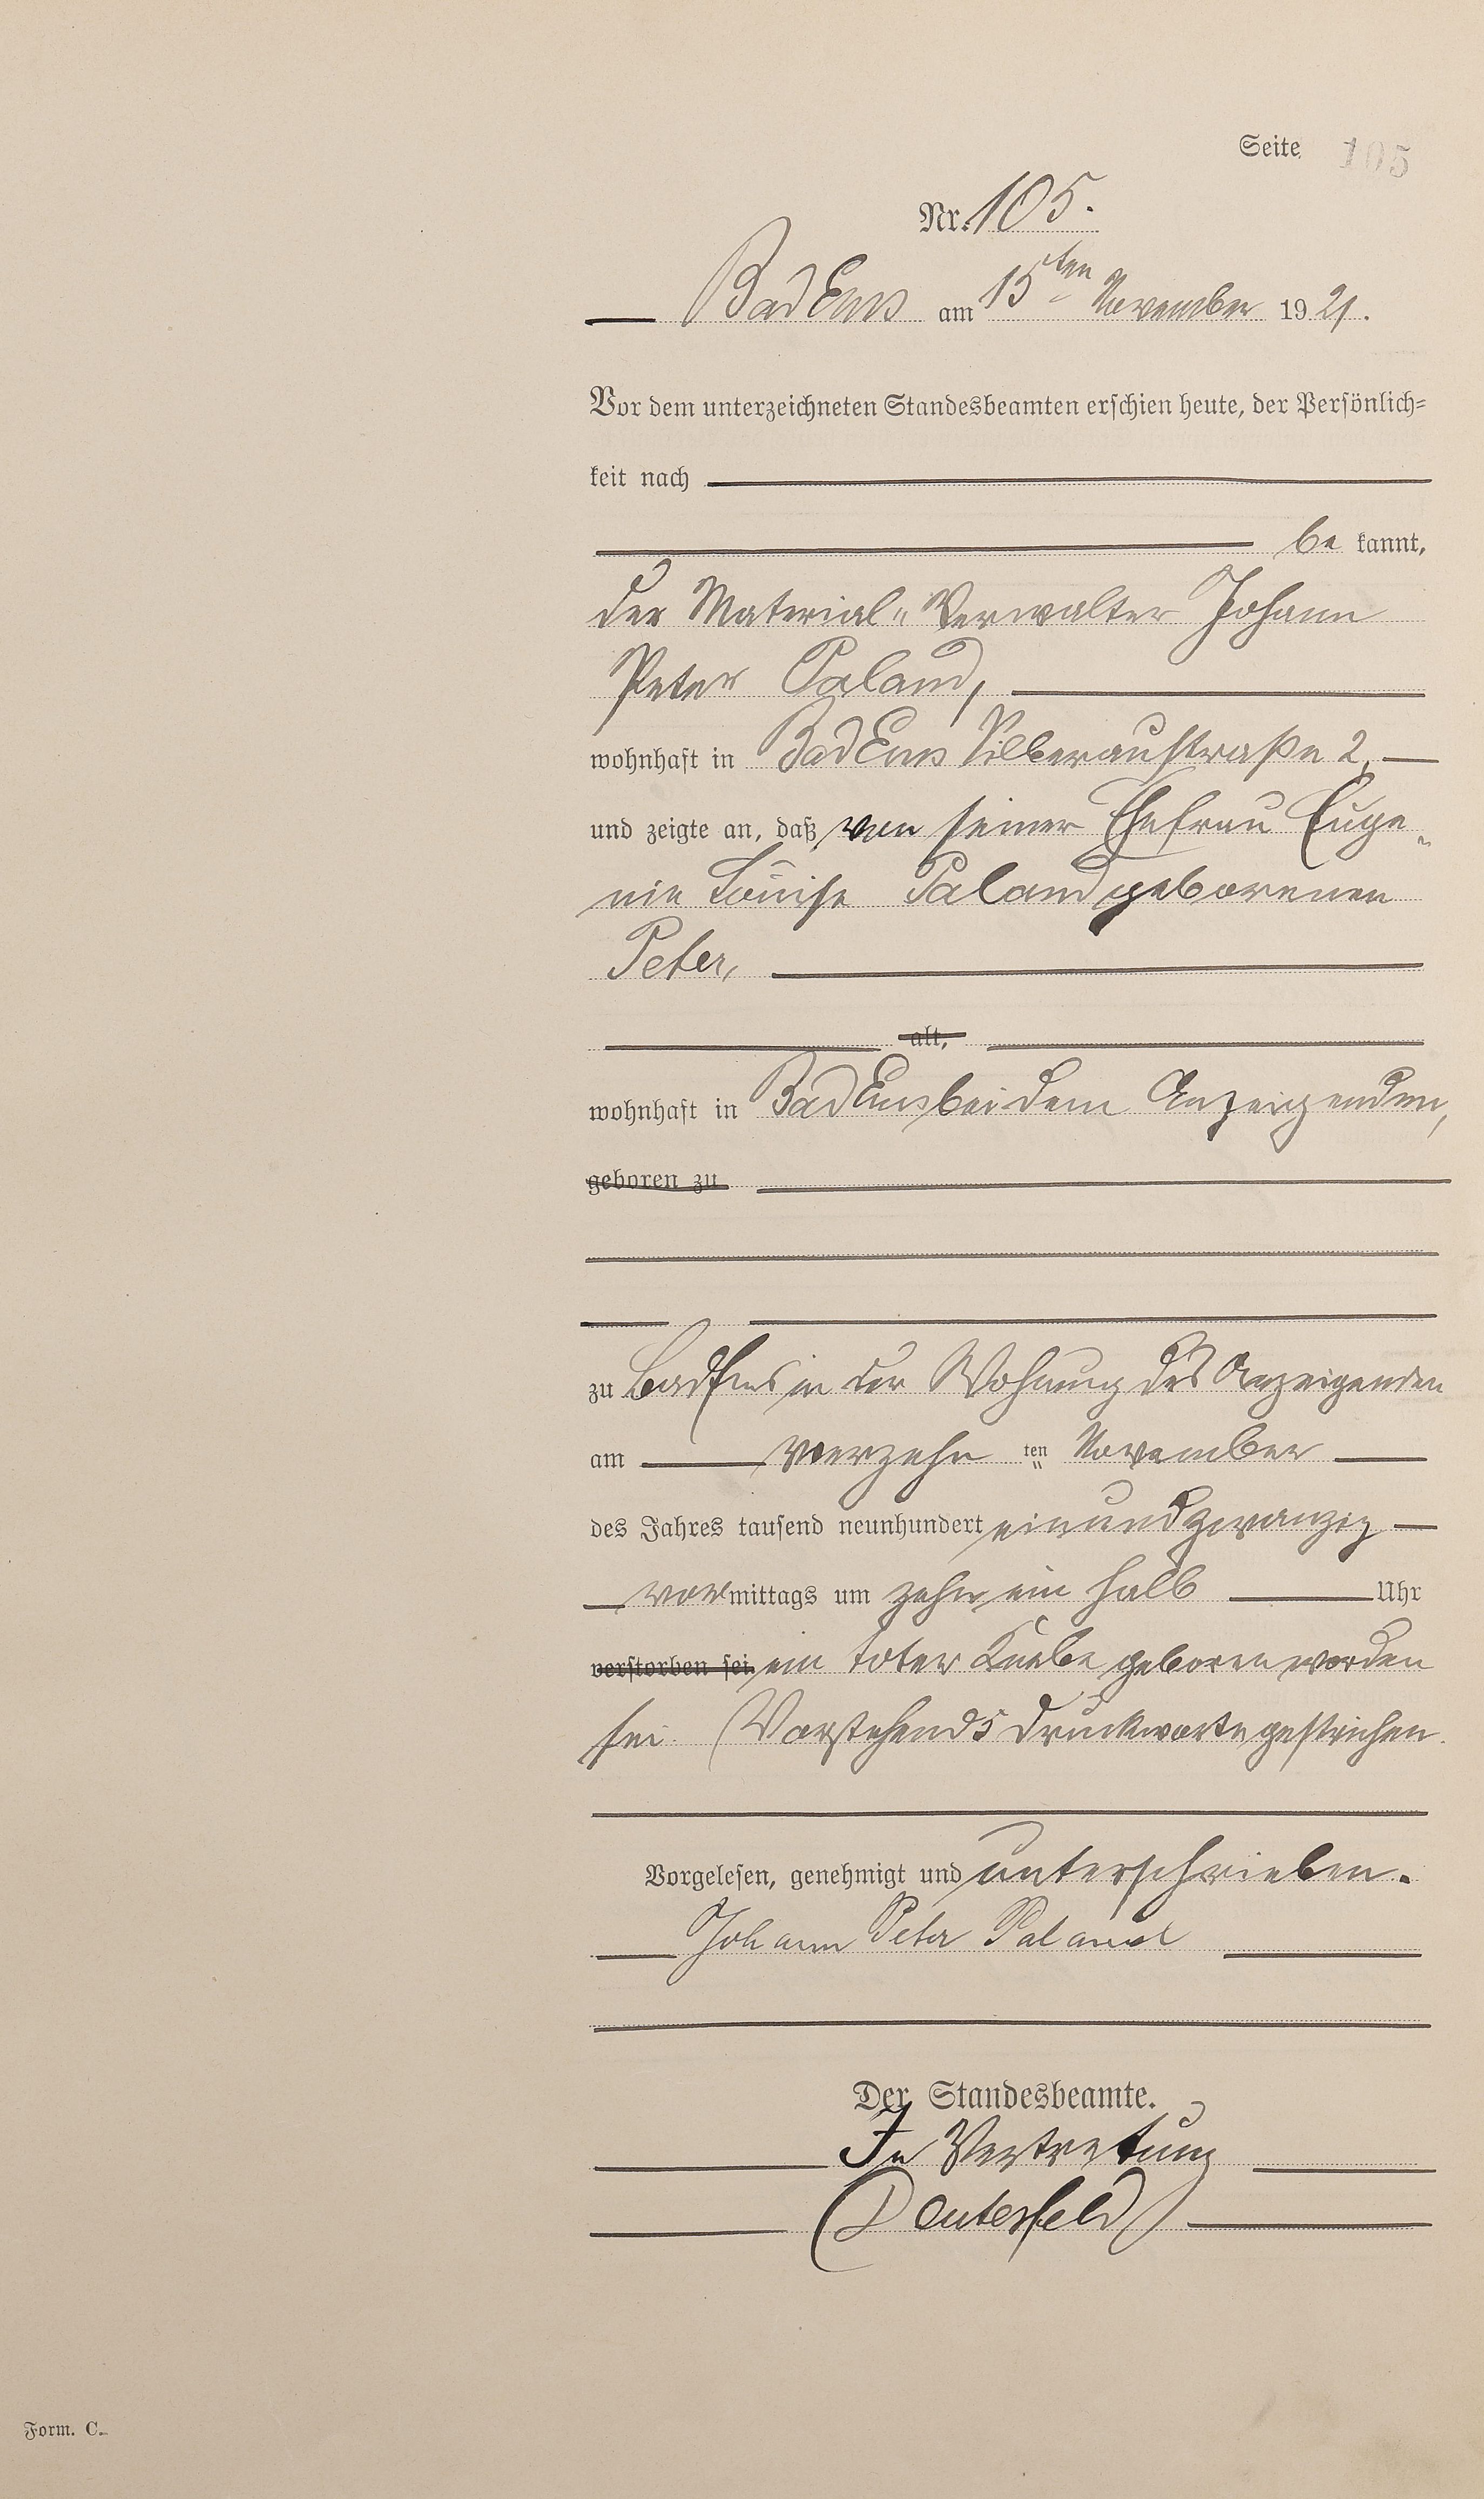 Seite 105
Nr. 105.
Bad Ems am 15ten November 1921.
Vor dem unterzeichneten Standesbeamten erschien heute, der Persönlich-
keit nach
be kannt,
der Material-Verwalter Johann
Peter Paland,
wohnhaft in Bad Ems Silberaustraße 2,
und zeigte an, daß von seiner Ehefrau Euge-
nie Louise Paland geborenen
Peter,
alt,
wohnhaft in Bad Ems bei dem Anzeigenden,
geboren zu
zu Bad Ems in der Wohnung des Anzeigenden
am vierzehn ten November
des Jahres tausend neunhundert einundzwanzig
vormittags um zehn ein halb Uhr
verstorben sei ein toter Knabe geboren worden
sei. (Vorstehend 5 Druckworte gestrichen.
Vorgelesen, genehmigt und unterschrieben.
Johann Peter Paland
Der Standesbeamte.
In Vertretung
(Deutesfeld)
Form. C.